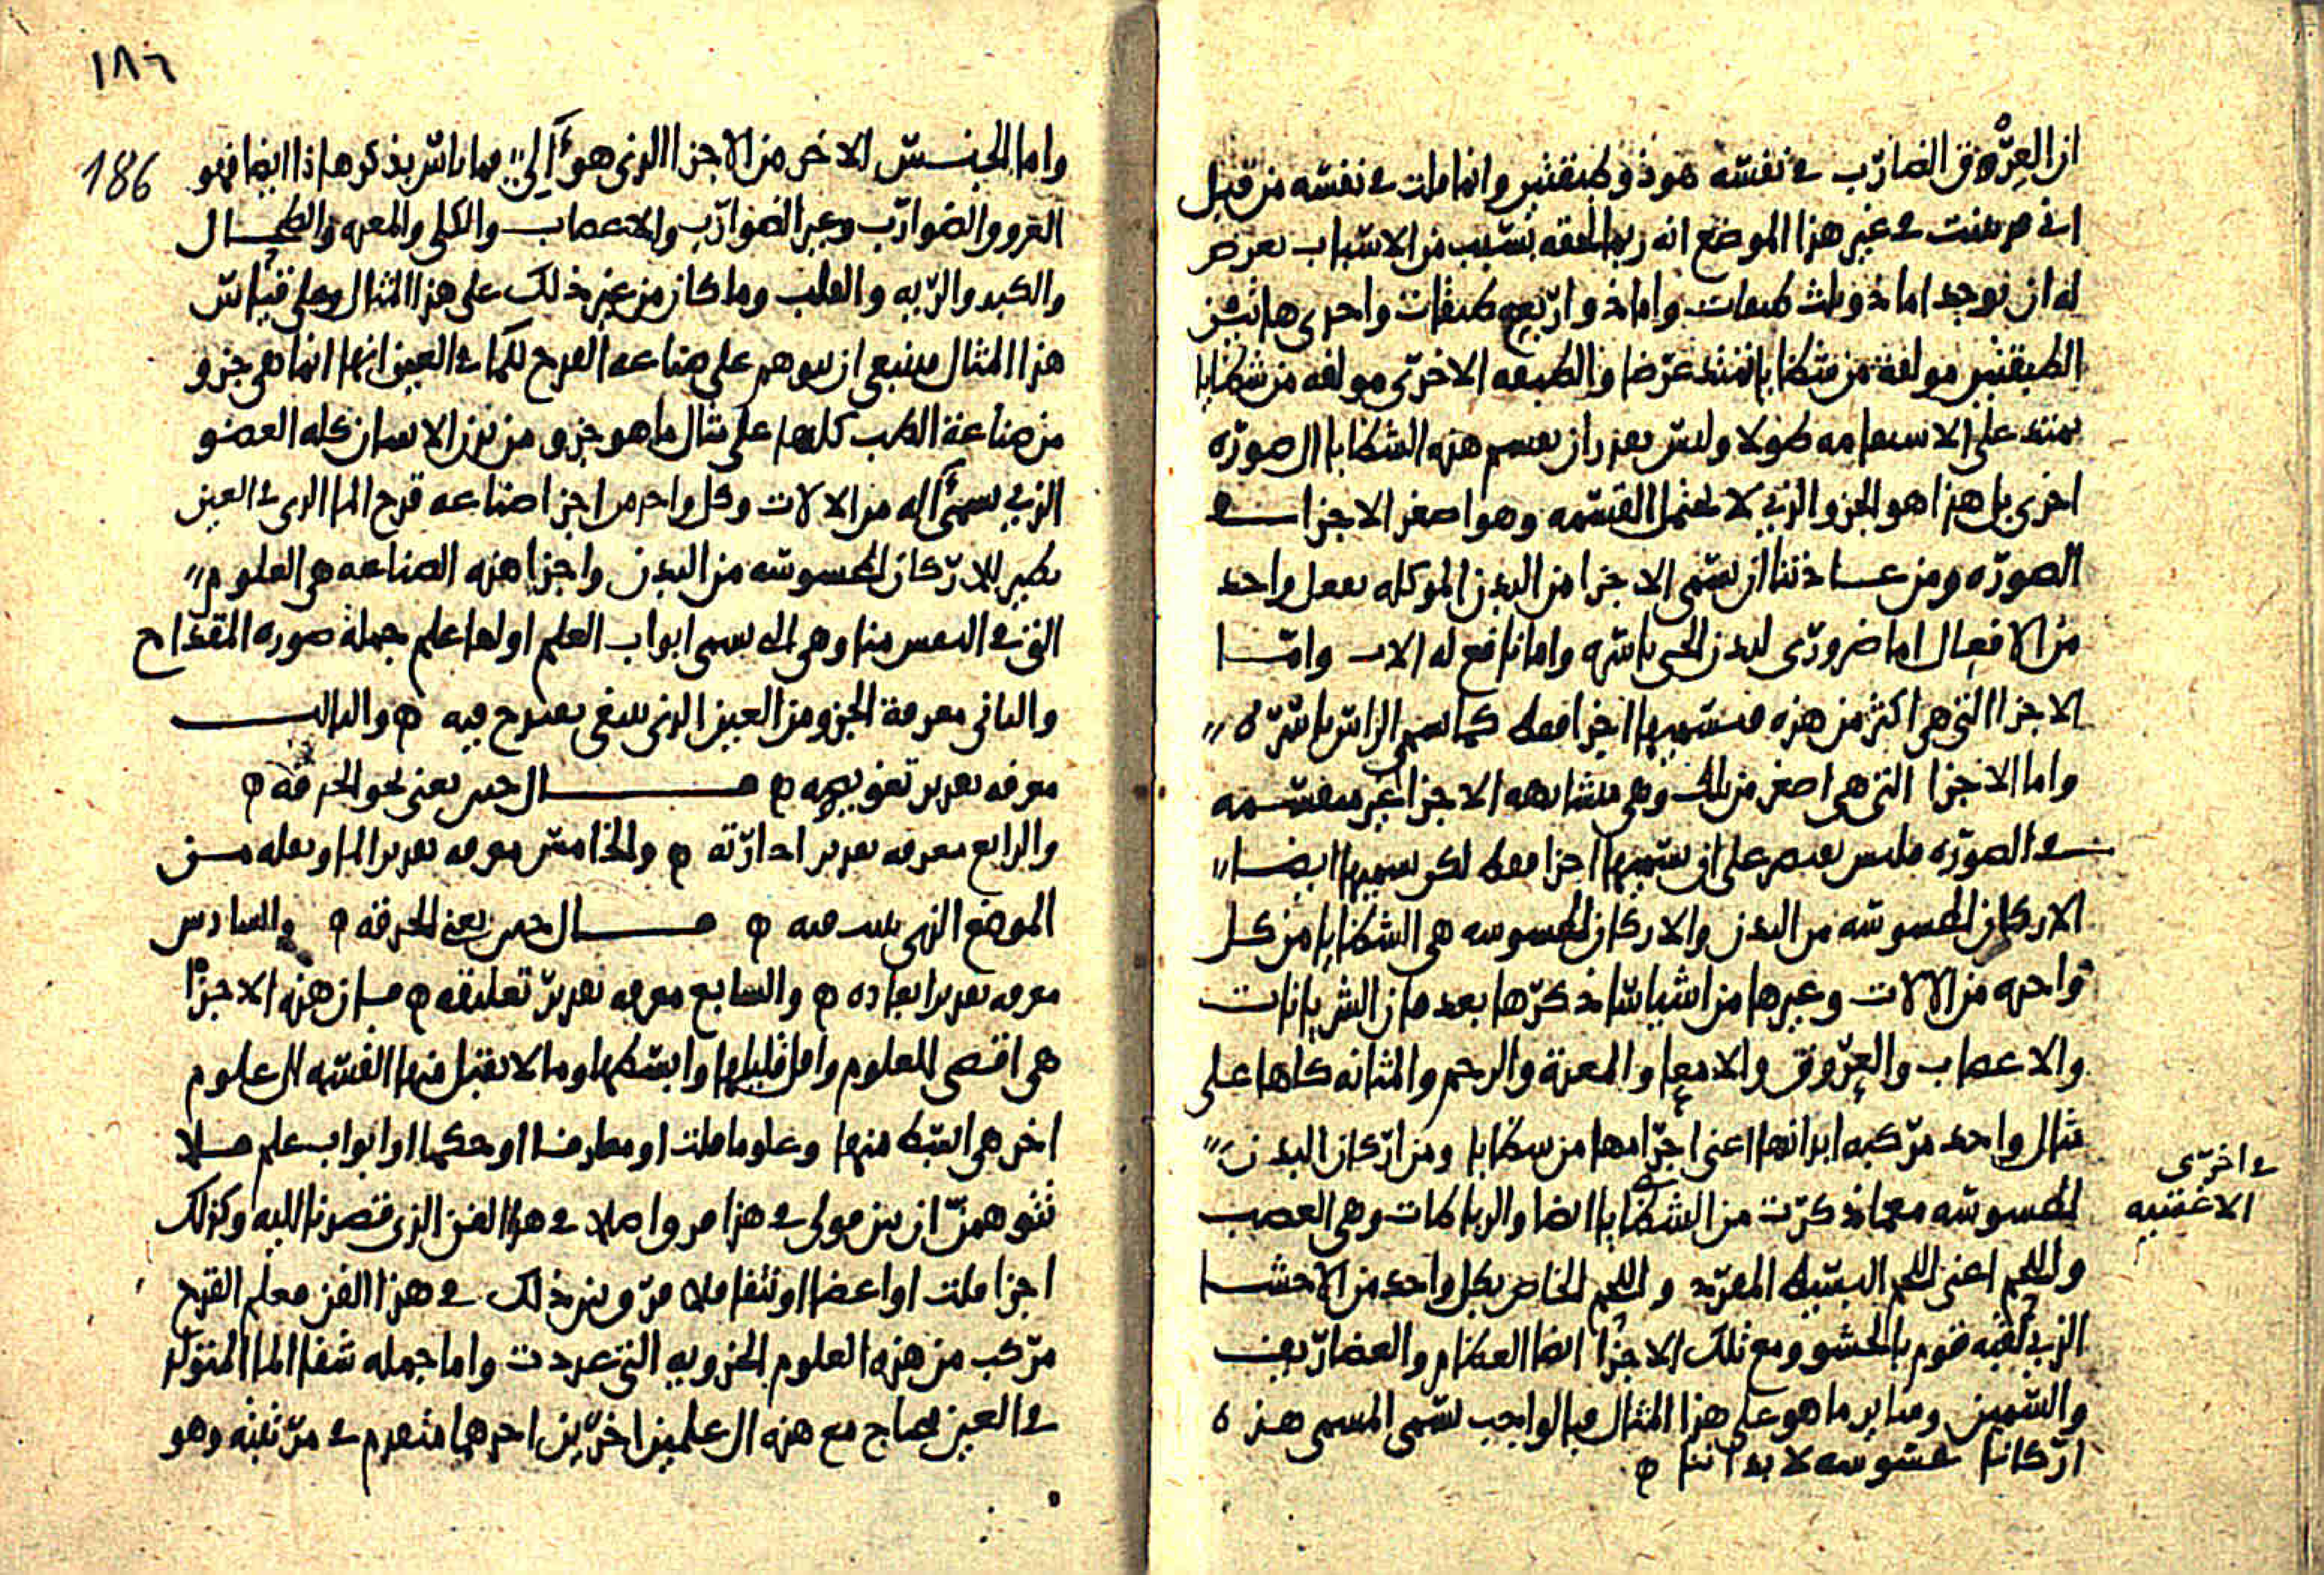 ان العرق الضارب في نفسه هو ذو طبقتين وانما قلت في نفسه من قبل
اني قد بينت في غير هذا الموضع انه ربما لحقه بسبب من الاسباب يعرض
له ان يوجد اما ذو ثلث طبقات واما ذو اربعه طبقات واحدى هاتين
الطبقتين مولفة من شظايا تمتد عرضا والطبقه الاخرى مولفه من شظايا
تمتد على الاستقامه طولا وليس يقدر ان يقسم هذه الشظايا الى صوره
اخرى بل هذا هو الجزو الذي لا يحتمل القسمه وهو اصغر الاجزا في
الصوره ومن عادتنا ان نسمى الاجزا من البدن الموكله بفعل واحد
من الافعال اما ضرورى لبدن الحي باسره واما نافع له الات واما
الاجزا التي هي اكثر من هذه فنسميها اجزا فقط كما نسمى الراس باسره
واما الاجزا التي هي اصغر من تلك وهي متشابهه الاجزا غير منقسمه
في الصوره فليس نقتصر على ان نسميها اجزا فقط لكن نسميها ايضا
الاركان المحسوسه من البدن والاركان المحسوسه هي الشظايا من كل
واحده من الالات وغيرها من اشيا سأذكرها بعد فان الشريانات
والاعصاب والعروق والامعا والمعدة والرحم والمثانه كلها على
مثال واحد مركبه ابدانها اعنى اجرامها من شظايا ومن اركان البدن
في اخرى
الاغشيه
المحسوسه مع ما ذكرت من الشظايا ايضا والرباطات وهى العصب
واللحم اعنى اللحم البسيط المفرد واللحم الخاص بكل واحد من الاحشا
الذي لقبه قوم بالحشو ومع تلك الاجزا ايضا العظام والغضاريف
والسمين وساير ما هو على هذا المثال فبالواجب نسمى المسمى هذه
اركانا محسوسه لابداننا
١٨٦
186
واما الجنس الاخر من الاجزا الذى هو آلي فما باس بذكر هاذا ايضا فهو
العروق الضوارب وغير الضوارب والاعصاب والكلى والمعده والطحال
والكبد والريه والقلب وما كان من غير ذلك على هذا المثال وعلى قياس
هذا المثال فينبغى ان يتوهم على صناعه القدح لما في العين انها انما هى جزو
من صناعة الطب كلها على مثال ما هو جزو من بدن الانسان كله العضو
الذي يسمى آله من الالات وكل واحد من اجزا صناعه قدح الما الذى في العين
نظير للاركان المحسوسه من البدن واجزا هذه الصناعه هى العلوم
التي في النفس منا وهى التى تسمى ابواب العلم اولها علم جملة صوره المقداح
والثانى معرفة الجزو من العين الذى ينبغى يقدح فيه والثالث
معرفه تقدير تغويصه قال حنين يعنى نحو الحدقه
والرابع معرفه تقدير ادارته والخامس معرفه تقدير الما ونقله من
الموضع الذي يثبت فيه قال حنين يعنى الحدقه والسادس
معرفه تقدير ابعاده والسابع معرفه تقدير تعليقه فان هذه الاجزا
هى اقصى العلوم واقل قليلها وابسطها وما لا يقبل منها القسمه الى علوم
اخر هى ابسط منها وعلوما قلت او معارف او حكما او ابواب علم فلا
تتوهمن ان بين قولى في هذا فرق اصلا في هذا الفن الذى قصدنا اليه وكذلك
اجزا قلت او اعضا او نتفا فلا فرق بين ذلك في هذا الفن فعلم القدح
مركب من هذه العلوم الجزويه التى عددت واما جمله شفا الما المتولد
في العين فيحتاج مع هذه الى علمين اخرين احدهما متقدم في مرتبته وهو